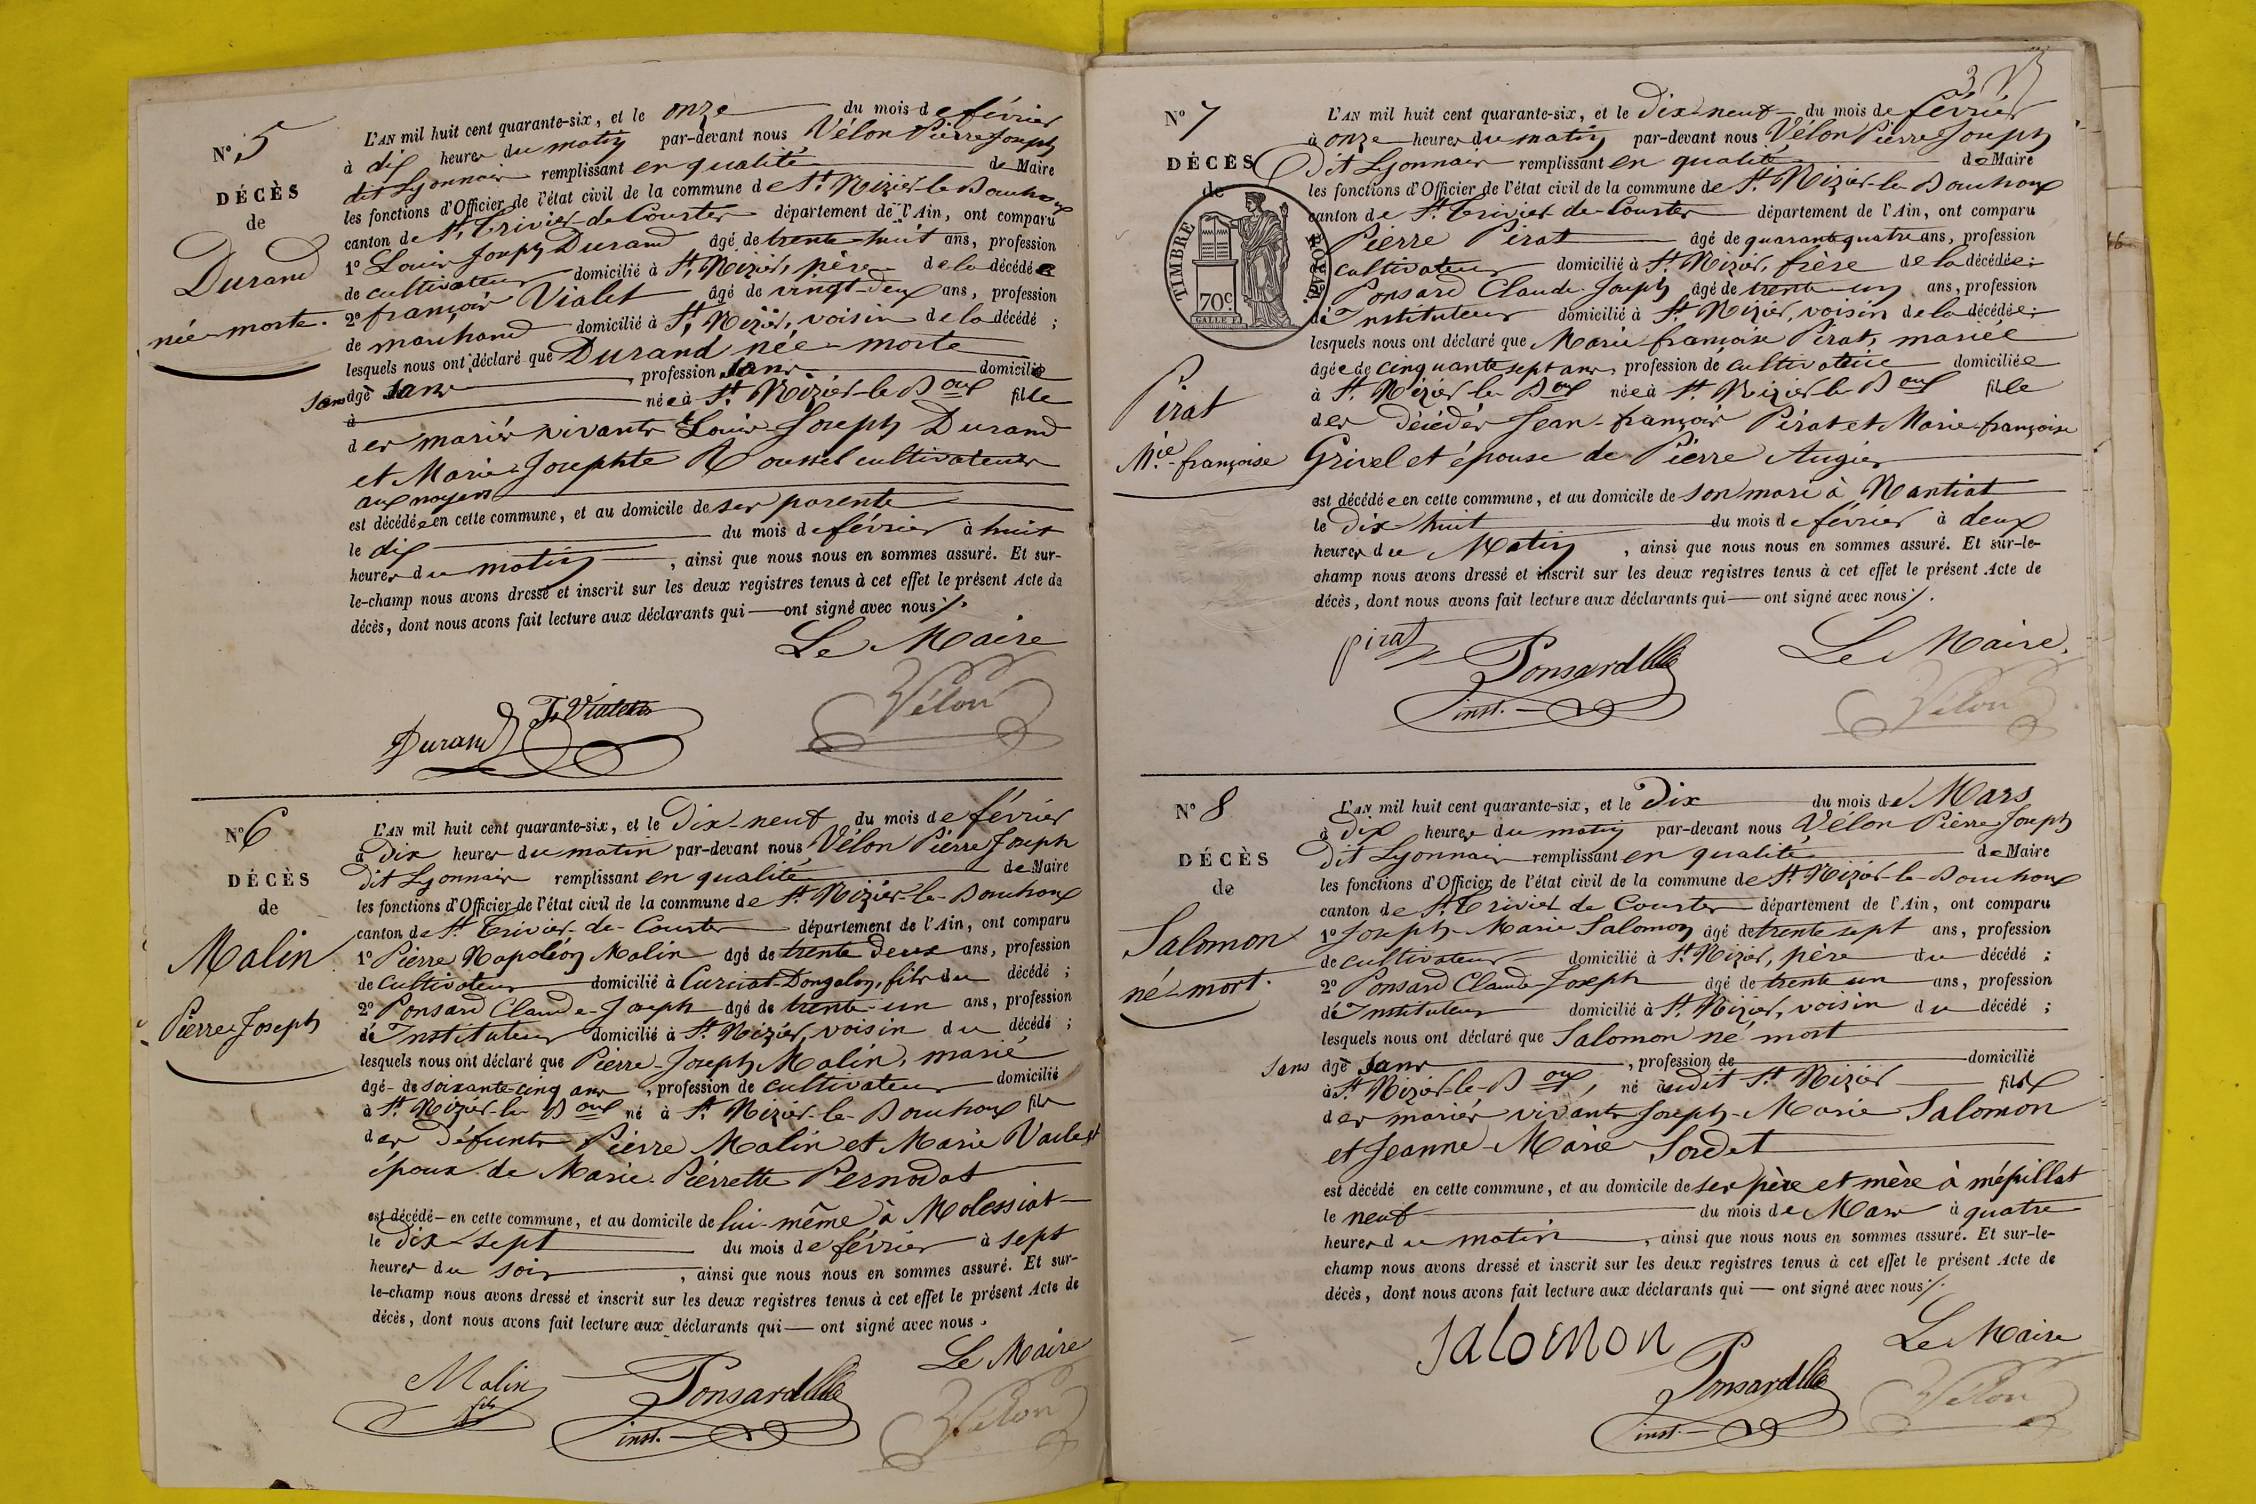 N° 5
DÉCÈS
de
Durand
née-morte.
L'AN mil huit cent quarante-six, et le onze du mois de février
à dix heures du matin par-devant nous Vélon Pierre Joseph
dit Lyonnais remplissant en qualité de Maire
les fonctions d'Officier de l'état civil de la commune de St. Nizier-le-Bouchoux
canton de St. Trivier-de-Courtes département de l'Ain, ont comparu
1° Louis Joseph Durand âgé de trente-huit ans, profession
de cultivateur domicilié à St. Nizier, père de la décédée
2° françois Vialet âgé de vingt-deux ans, profession
de marchand domicilié à St. Nizier, voisin de la décédé ;
lesquels nous ont déclaré que Durand née-morte
sans âgé sans profession sans domicilié
à née à St. Nizier-le-Boux fille
des mariés vivants Louis Joseph Durand
et Marie-Josephte Roussel cultivateurs
aux noyers
est décédée en cette commune, et au domicile de ses parents
le dix du mois de février à huit
heures du matin, ainsi que nous nous en sommes assuré. Et sur-
le-champ nous avons dressé et inscrit sur les deux registres tenus à cet effet le présent Acte de
décès, dont nous avons fait lecture aux déclarants qui — ont signé avec nous ./.
Le Maire
Durand Fs Vialet Vélon
N° 6
DÉCÈS
de
Malin
Pierre Joseph
L'AN mil huit cent quarante-six, et le Dix-neuf du mois de février
à Dix heures du matin par-devant nous Vélon Pierre Joseph
dit Lyonnais remplissant en qualité de Maire
les fonctions d'Officier de l'état civil de la commune de St. Nizier-le-Bouchoux
canton de St. Trivier-de-Courtes département de l'Ain, ont comparu
1° Pierre Napoléon Malin âgé de trente deux ans, profession
de cultivateur domicilié à Curciat-Dongalon, fils du décédé ;
2° Ponsard Claude-Joseph âgé de trente-un ans, profession
de Instituteur domicilié à St. Nizier, voisin du décédé ;
lesquels nous ont déclaré que Pierre-Joseph Malin, marié
âgé de soixante-cinq ans, profession de cultivateur domicilié
à St. Nizier-le-Boux né à St. Nizier-le-Bouchoux fils
des défunts Pierre Malin et Marie
époux de Marie Pierrette Pernodat
est décédé en cette commune, et au domicile de lui-même à Molessiat
le Dix-sept du mois de février à sept
heures du soir, ainsi que nous nous en sommes assuré. Et sur-
le-champ nous avons dressé et inscrit sur les deux registres tenus à cet effet le présent Acte de
décès, dont nous avons fait lecture aux déclarants qui — ont signé avec nous.
Le Maire
Malin fils Ponsard inst. Vélon
3
N° 7
DÉCÈS
de
TIMBRE ROYAL.
70c
Pirat
Mie-françoise
L'AN mil huit cent quarante-six, et le Dix-neuf du mois de février
à onze heures du matin par-devant nous Vélon Pierre Joseph
Dit Lyonnais remplissant en qualité de Maire
les fonctions d'Officier de l'état civil de la commune de St. Nizier-le-Bouchoux
canton de St. Trivier-de-Courtes département de l'Ain, ont comparu
Pierre Pirat âgé de quarante quatre ans, profession
de cultivateur domicilié à St. Nizier, frère de la décédée ;
Ponsard Claude-Joseph âgé de trente-un ans, profession
de Instituteur domicilié à St. Nizier, voisin de la décédée ;
lesquels nous ont déclaré que Marie françoise Pirat, mariée
âgée de cinquante sept ans, profession de cultivatrice domiciliée
à St. Nizier-le-Boux née à St. Nizier-le-Boux fille
des décédés Jean-françois Pirat et Marie-françoise
Grivel et épouse de Pierre Augier
est décédée en cette commune, et au domicile de son mari à Nantiat
le Dix-huit du mois de février à deux
heures du Matin, ainsi que nous nous en sommes assuré. Et sur-le-
champ nous avons dressé et inscrit sur les deux registres tenus à cet effet le présent Acte de
décès, dont nous avons fait lecture aux déclarants qui — ont signé avec nous ./.
pirat Ponsard inst. Le Maire,
Vélon
N° 8
DÉCÈS
de
Salomon
né-mort.
L'AN mil huit cent quarante-six, et le Dix du mois de Mars
à dix heures du matin par-devant nous Vélon Pierre Joseph
Dit Lyonnais remplissant en qualité de Maire
les fonctions d'Officier de l'état civil de la commune de St. Nizier-le-Bouchoux
canton de St. Trivier de Courtes département de l'Ain, ont comparu
1° Joseph-Marie Salomon âgé de trente sept ans, profession
de cultivateur domicilié à St. Nizier, père du décédé ;
2° Ponsard Claude-Joseph âgé de trente un ans, profession
de Instituteur domicilié à St. Nizier, voisin du décédé ;
lesquels nous ont déclaré que Salomon né mort
sans âgé sans, profession de domicilié
à St. Nizier-le-Boux, né audit St. Nizier fils
des mariés vivants Joseph-Marie Salomon
et Jeanne-Marie Sordet
est décédé en cette commune, et au domicile de ses père et mère à mépillat
le neuf du mois de Mars à quatre
heures du matin, ainsi que nous nous en sommes assuré. Et sur-le-
champ nous avons dressé et inscrit sur les deux registres tenus à cet effet le présent Acte de
décès, dont nous avons fait lecture aux déclarants qui — ont signé avec nous ./.
Salomon Ponsard inst. Le Maire
Vélon